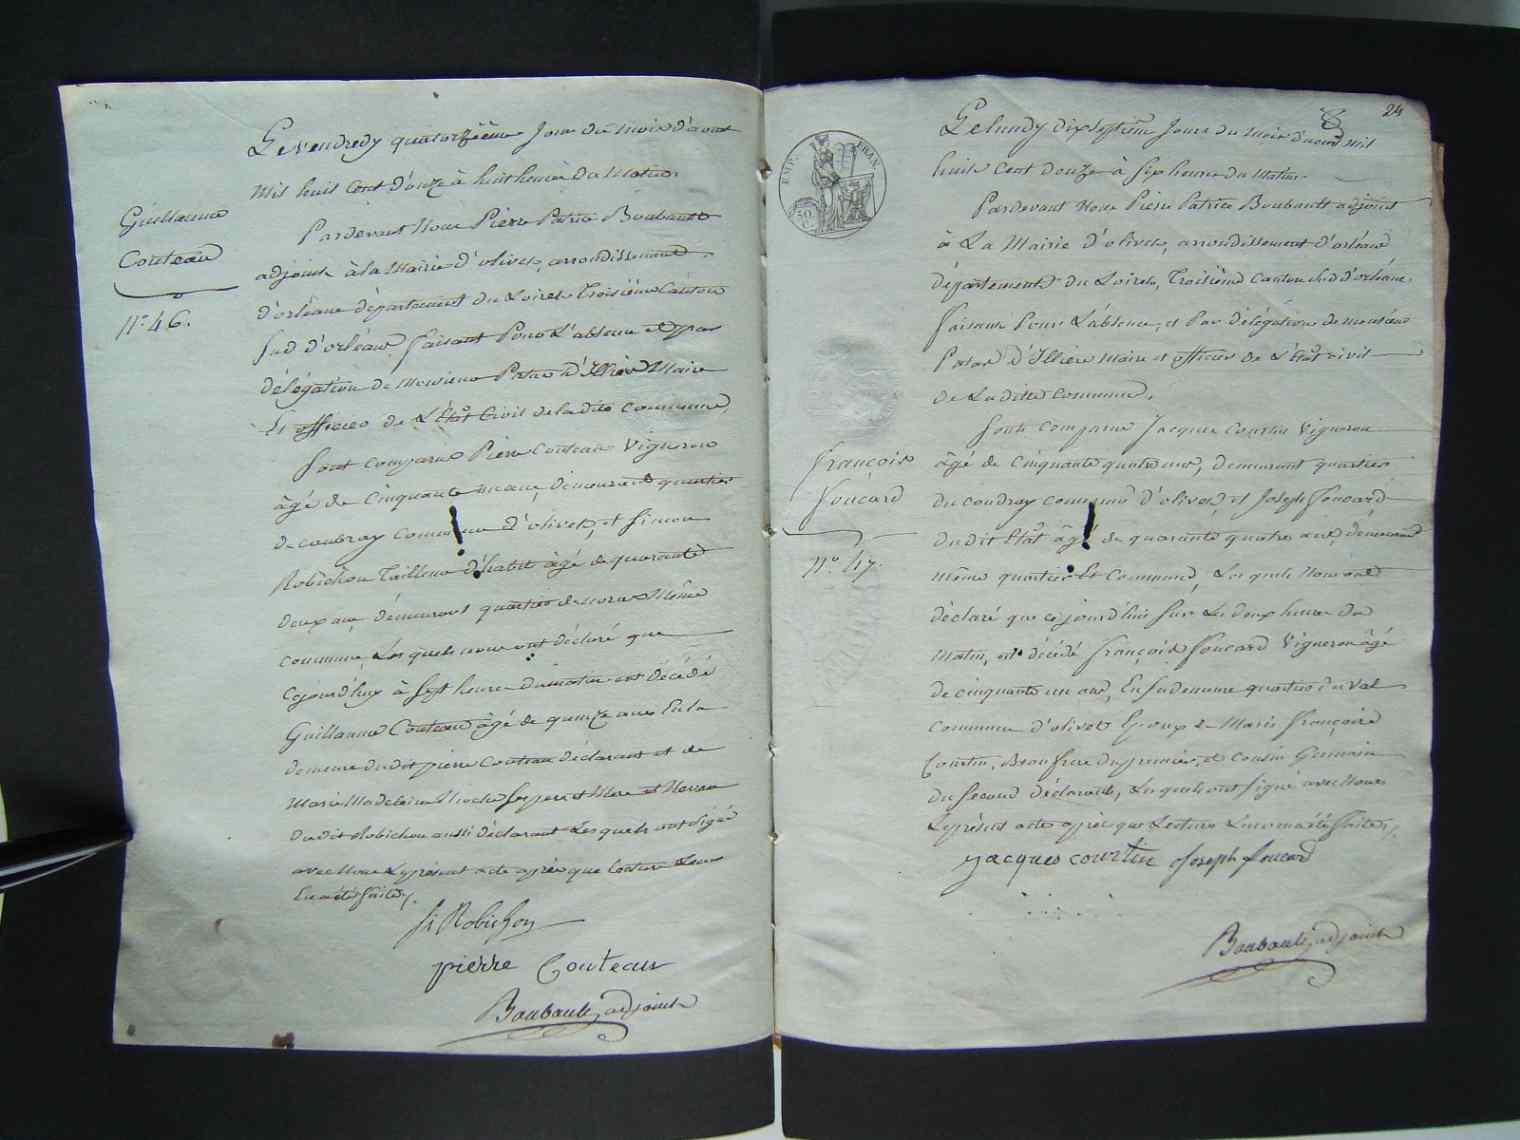 Guillaume
Couteau
N.° 46.
Le vendredy quatorzième Jour du mois d'aout
mil huit Cent d'ouze à huit heures du Matin.
Pardevant Nous Pierre Patrice Boubault
adjoint à la Mairie d'olivet, arrondissement
d'orléans département du Loiret Troisième Canton
sud d'orléans faisant Pour L'absence et par
délégation de Monsieur Patas d'Illiers Maire
Et officier de L'État Civil de la dite commune,
sont comparus Pierre Couteau Vigneron
âgé de Cinquante un ans, demeurant quartier
de coudray commune d'olivet, et simon
Robichon Tailleur d'habit âgé de quarante
deux ans, demeurant quartier de même
commune, Les quels nous ont déclaré que
Cejourd'huy à sept heures du matin est décédé
Guillaume Couteau âgé de quinze ans En la
demeure dudit pierre Couteau déclarant et de
Marie Madeleine ses pere et Mere et Neveu
Dudit Robichon aussi déclarant Lesquels ont signé
avec Nous Le présent acte après que Lecture Leur
En a été faite.
Si Robichon
pierre Couteau
Boubault, adjoint
24
8
EMP. FRAN.
50 C.
François
Foucard
N.° 47.
Le lundy dixseptième Jour du mois d'aout mil
huit Cent douze à six heures du Matin.
Pardevant Nous Pierre Patrice Boubault adjoint
à La Mairie d'olivet, arrondissement d'orléans
département du Loiret, Troisième Canton sud d'orléans.
faisant Pour L'absence, et Par délégation de monsieur
Patas d'Illiers Maire et officier de L'État civil
de La ditte Commune.
sont Comparus Jacques Courtin Vigneron
âgé de Cinquante quatre ans, demeurant quartier
du coudray commune d'olivet, et Joseph Foucard
dudit État âgé de quarante quatre ans, demeurant
même quartier Et Commune, Lesquels Nous ont
déclaré que cejourd'hui sur Les deux heures du
Matin, est décédé François Foucard Vigneron âgé
de cinquante un ans, En sa demeure quartier du Val
Commune d'olivet Epoux de Marie Françoise
Courtin, Beaufrere du premier, et Cousin Germain
du second Déclarants, Lesquels ont signé avec Nous
Le présent acte après que Lecture Leur en a été faite,
Jacques courtin Joseph foucard
Boubault, adjoint